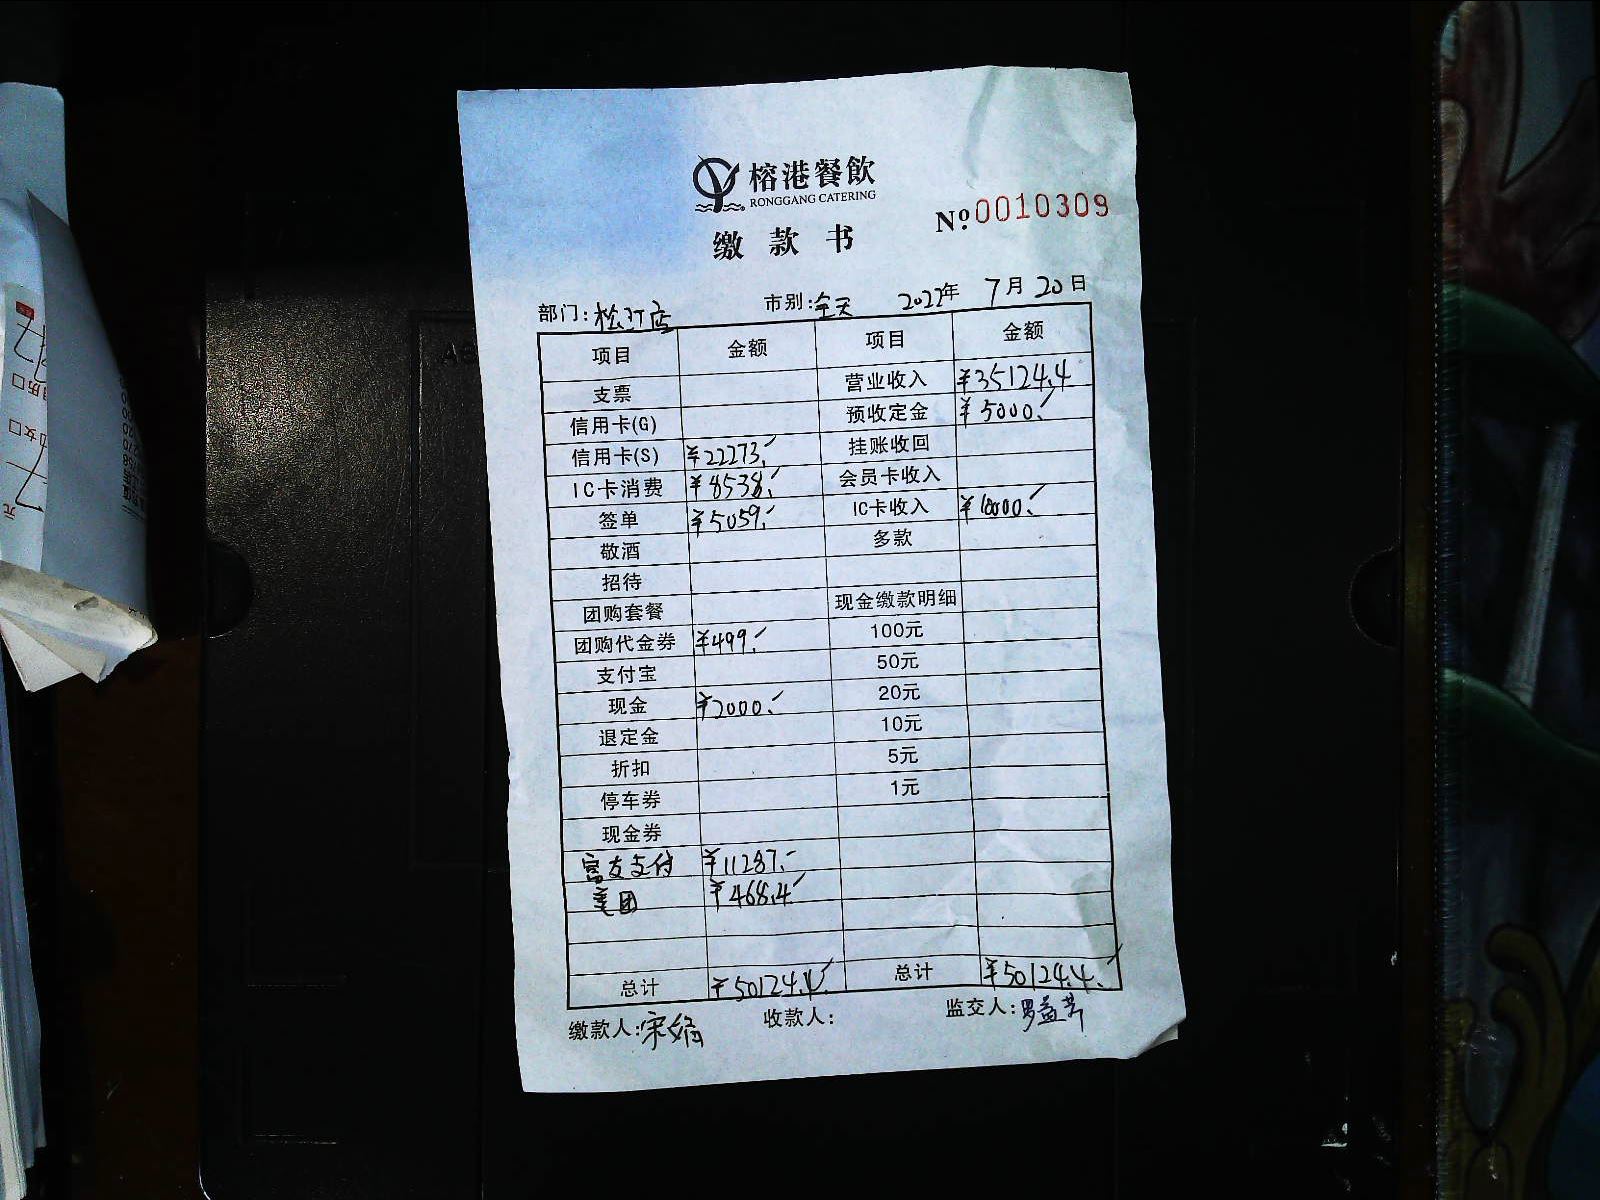 榕港餐飲
RONGGANG CATERING
缴款书
No.0010309
部门:松江店 市别:全天 2022年 7月20日
项目 金额 项目 金额
支票 营业收入 ¥35124.4
信用卡(G) 预收定金 ¥5000.-
信用卡(S) ¥22273.- 挂账收回
IC卡消费 ¥8538.- 会员卡收入
签单 ¥5059.- IC卡收入 ¥10000.-
敬酒 多款
招待
团购套餐 现金缴款明细
团购代金券 ¥499.- 100元
支付宝 50元
现金 ¥2000.- 20元
退定金 10元
折扣 5元
停车券 1元
现金券
富友支付 ¥11287.-
美团 ¥468.4
总计 ¥50124.4 总计 ¥50124.4
缴款人:宋娟 收款人: 监交人:罗益芳